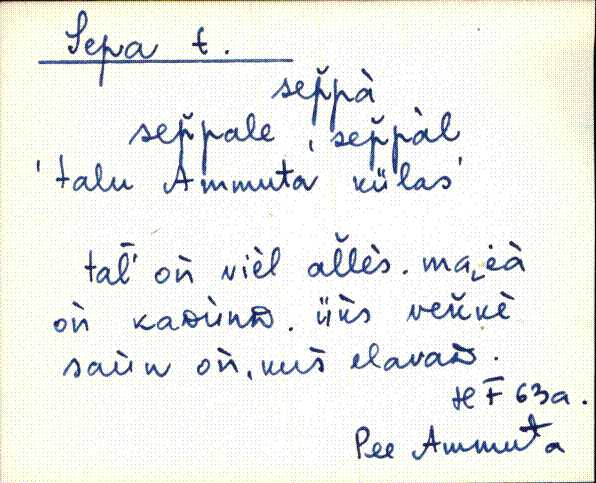 Sepa t.
sep̆pà
sep̆pale, sep̆pàl
'talu Ammuta külas'
tal̄' oǹ vièl al̆lès. mai̯èà
oǹ kaᴅùnᴅ. ük̀s vek̆kè
saùn oǹ, kus̄ elavaᴅ.
H F̄ 63a.
Pee Ammuta